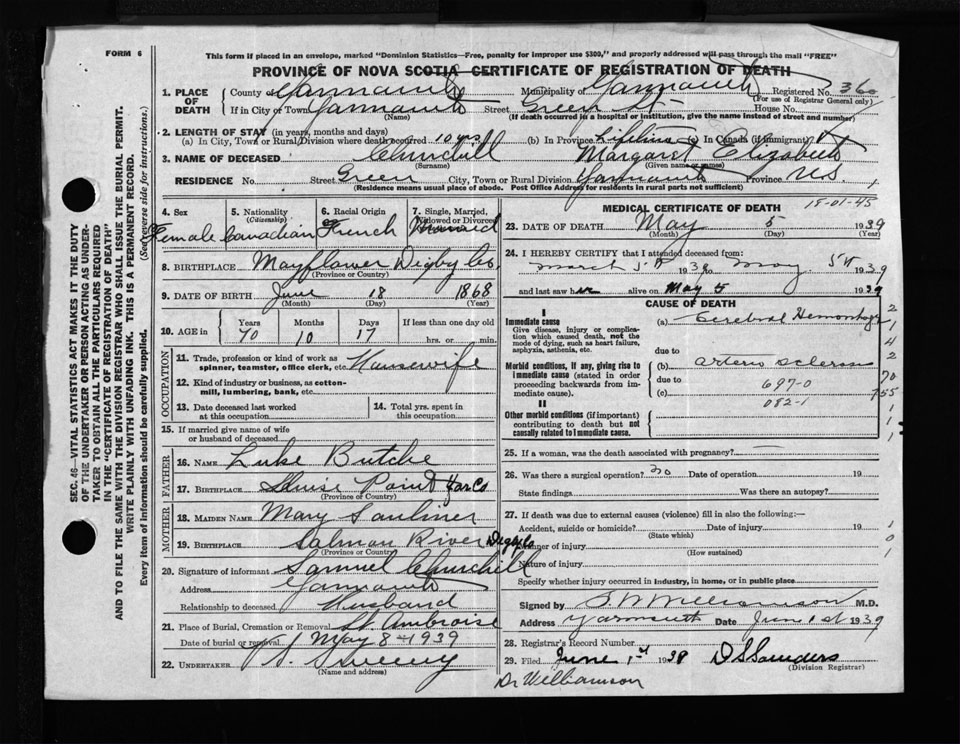 FORM 6
This form if placed in an envelope, marked "Dominion Statistics—Free, penalty for improper use $300," and properly addressed will pass through the mail "FREE"
PROVINCE OF NOVA SCOTIA—CERTIFICATE OF REGISTRATION OF DEATH
SEC. 46—VITAL STATISTICS ACT MAKES IT THE DUTY
OF THE UNDERTAKER OR PERSON ACTING AS UNDER-
TAKER TO OBTAIN ALL THE PARTICULARS REQUIRED
IN THE "CERTIFICATE OF REGISTRATION OF DEATH"
AND TO FILE THE SAME WITH THE DIVISION REGISTRAR WHO SHALL ISSUE THE BURIAL PERMIT.
WRITE PLAINLY WITH UNFADING INK. THIS IS A PERMANENT RECORD.
Every item of information should be carefully supplied. (See reverse side for instructions.)
1. PLACE OF DEATH County of Yarmouth Municipality of Yarmouth Registered No. 360
(For use of Registrar General only)
If in City or Town Yarmouth Street Green St- House No.
(Name) (If death occurred in a hospital or institution, give the name instead of street and number)
2. LENGTH OF STAY (in years, months and days)
(a) In City, Town or Rural Division where death occurred 10 yrs (b) In Province Lifetime (c) In Canada (if immigrant)
3. NAME OF DECEASED Churchill Margaret Elizabeth
(Surname) (Given name or names)
RESIDENCE No. Street Green City, Town or Rural Division Yarmouth Province N.S.
(Residence means usual place of abode. Post Office Address for residents in rural parts not sufficient)
4. Sex Female
5. Nationality (Citizenship) Canadian
6. Racial Origin French
7. Single, Married, Widowed or Divorced Married
8. BIRTHPLACE Mayflower Digby Co.
(Province or Country)
9. DATE OF BIRTH June 18 1868
(Month) (Day) (Year)
10. AGE in Years 70 Months 10 Days 17 If less than one day
hrs. or min.
OCCUPATION
11. Trade, profession or kind of work as
spinner, teamster, office clerk, etc. Housewife
12. Kind of industry or business, as cotton-
mill, lumbering, bank, etc.
13. Date deceased last worked
at this occupation
14. Total yrs. spent in
this occupation
15. If married give name of wife
or husband of deceased
FATHER
16. NAME Luke Butche
17. BIRTHPLACE Sluise Point Yar Co
(Province or Country)
MOTHER
18. MAIDEN NAME Mary Saulnier
19. BIRTHPLACE Salmon River Digby Co
(Province or Country)
20. Signature of informant Samuel Churchill
Address Yarmouth
Relationship to deceased Husband
21. Place of Burial, Cremation or Removal St. Ambroise
Date of burial or removal May 8 1939
22. UNDERTAKER Sweeny
(Name and address)
MEDICAL CERTIFICATE OF DEATH 18-01-45
23. DATE OF DEATH May 5 1939
(Month) (Day) (Year)
24. I HEREBY CERTIFY that I attended deceased from:
March 5th 1939 to May 5th 1939
and last saw her alive on May 5 1939
CAUSE OF DEATH
I
Immediate cause
Give disease, injury or complica-
tion which caused death, not the
mode of dying, such as heart failure,
asphyxia, asthenia, etc.
(a) Cerebral Hemorrhage
due to
Morbid conditions, if any, giving rise to
immediate cause (stated in order
proceeding backwards from im-
mediate cause).
(b) arterio sclerosis
due to 697-0
(c) 082-1
II
Other morbid conditions (if important)
contributing to death but not
causally related to immediate cause.
2
1
4
2
70
755
1
1
1
25. If a woman, was the death associated with pregnancy?
26. Was there a surgical operation? no Date of operation 19
State findings Was there an autopsy?
27. If death was due to external causes (violence) fill in also the following:—
Accident, suicide or homicide? Date of injury 19
(State which)
Manner of injury
(How sustained)
Nature of injury
1
0
1
Specify whether injury occurred in industry, in home, or in public place
Signed by Williamson M.D.
Address Yarmouth Date June 1st 1939
28. Registrar's Record Number
29. Filed June 1st 1939 D S Saunders
(Division Registrar)
Dr Williamson